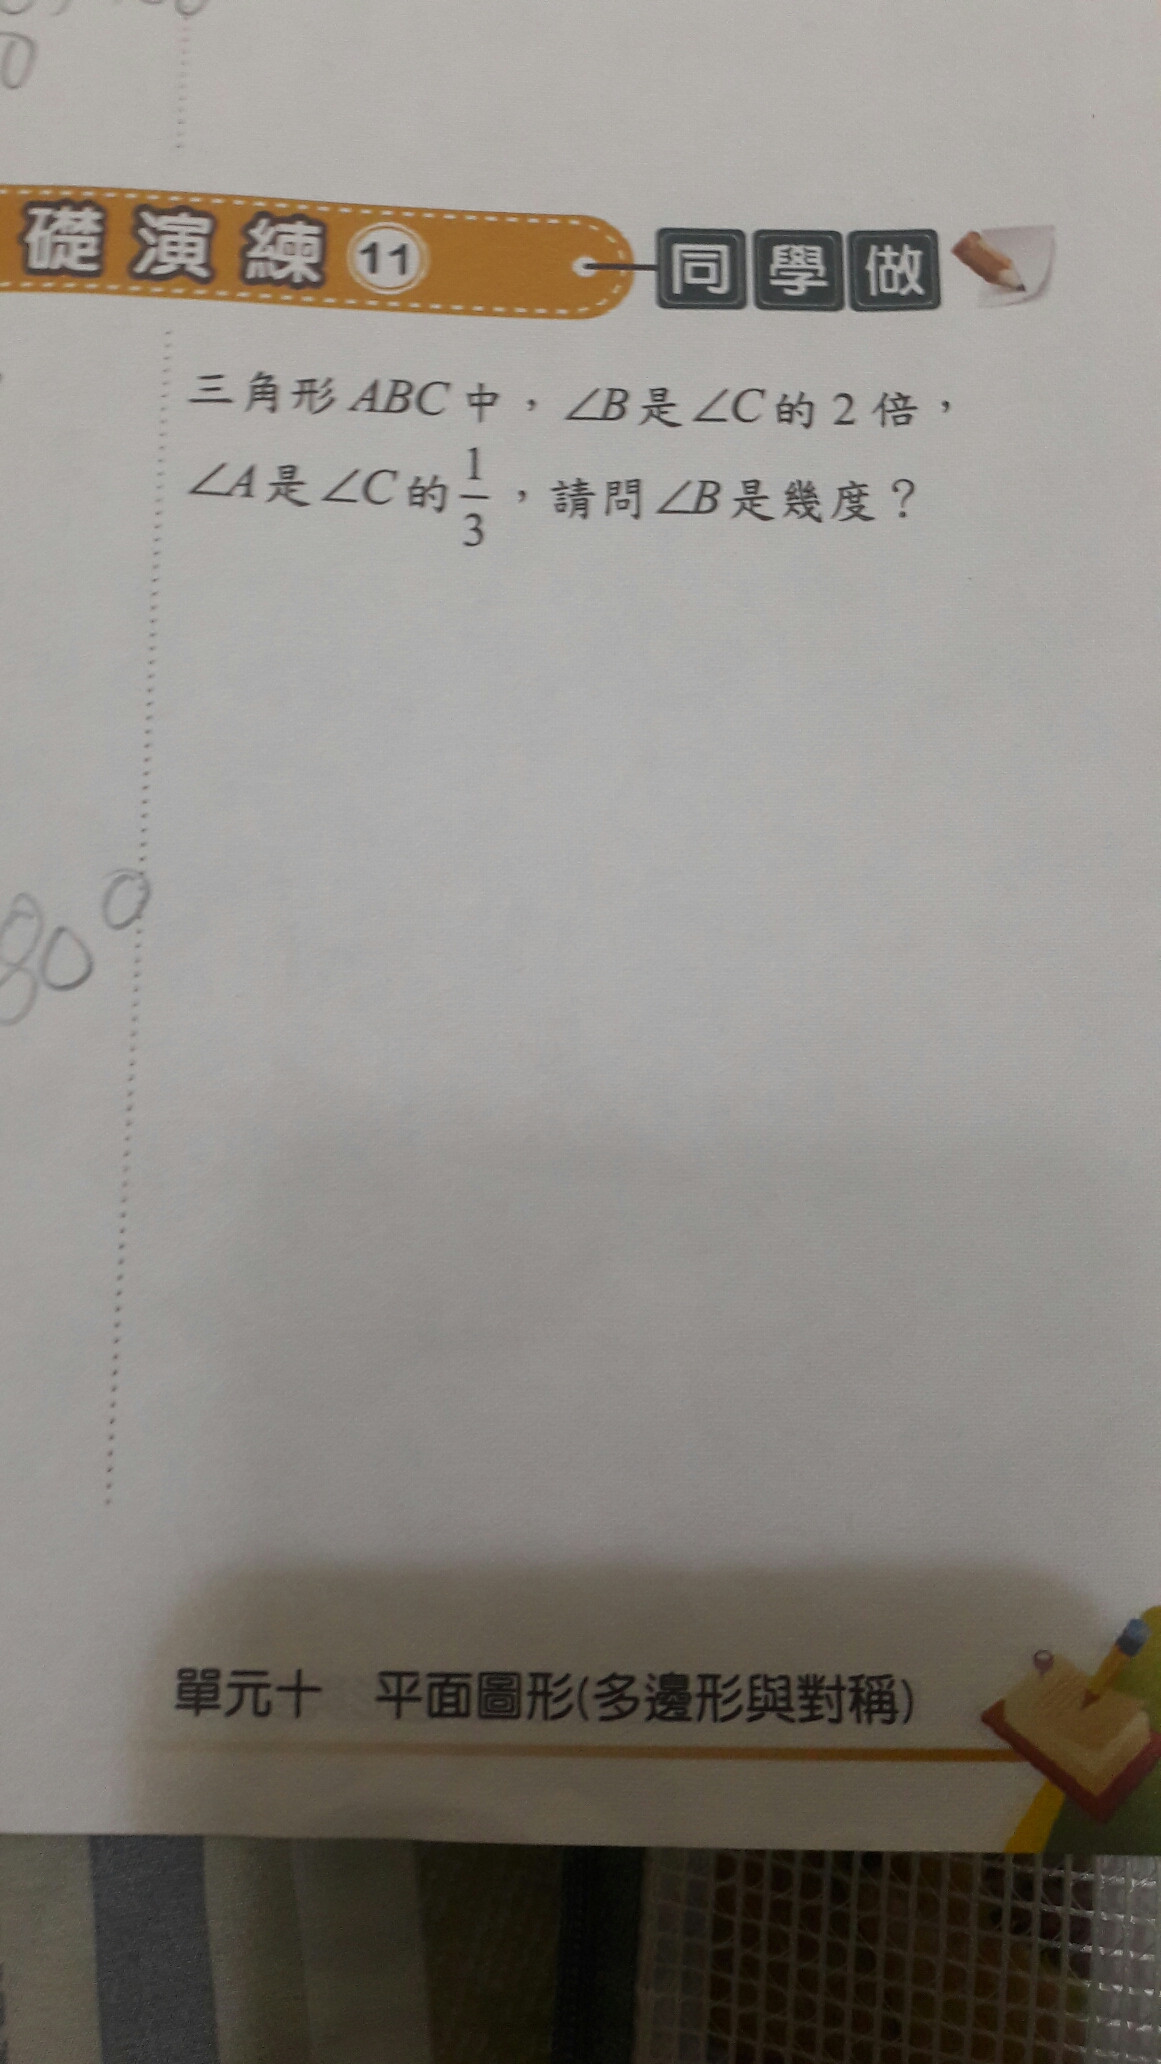 0
礎演練 11 同學做
三角形ABC中，∠B是∠C的2倍，
∠A是∠C的1/3，請問∠B是幾度？
80°
單元十 平面圖形(多邊形與對稱)